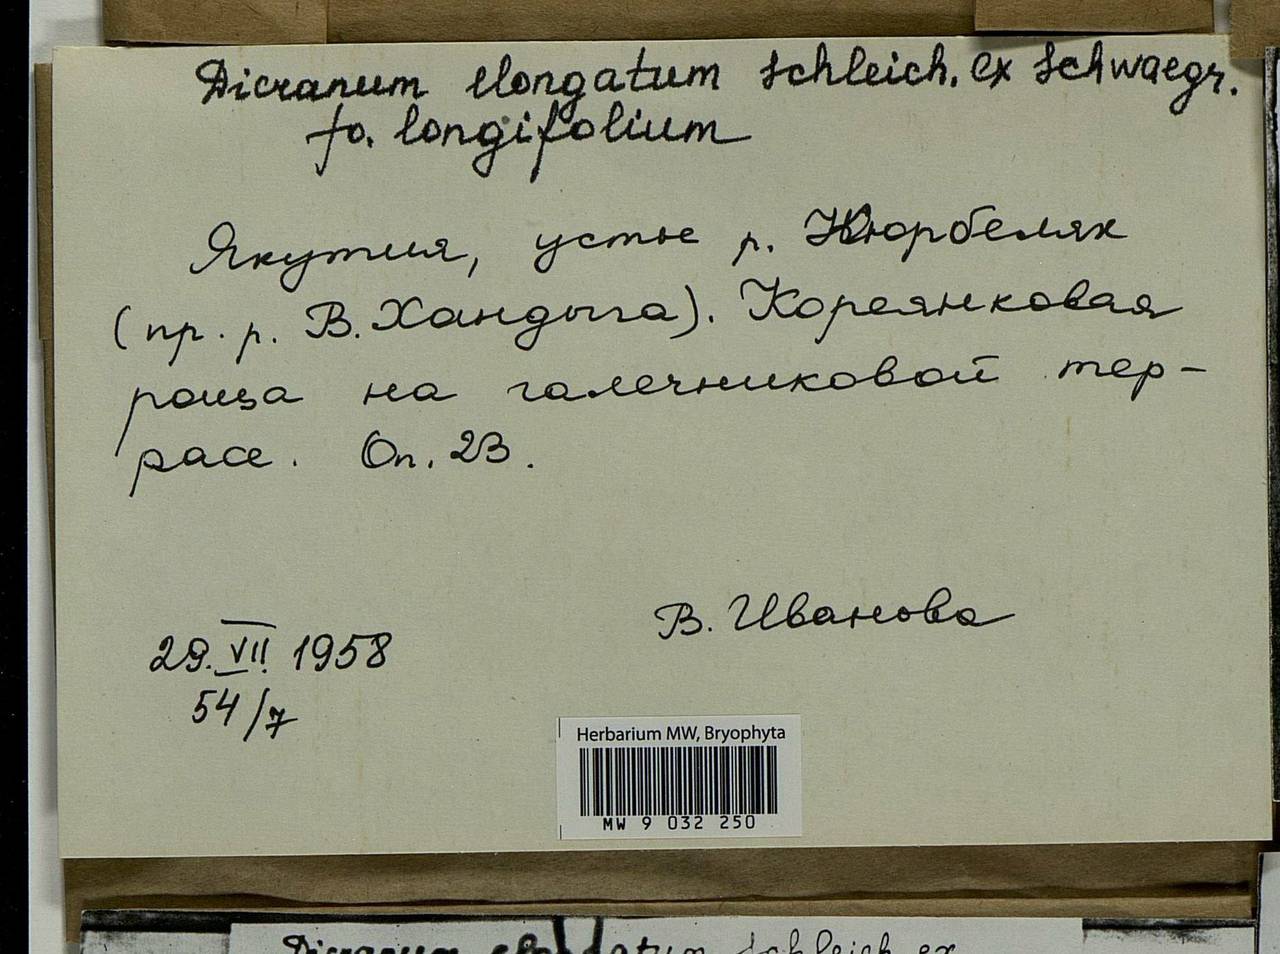 Dicranum elongatum Schleich. ex Schwaegr.
fo. longifolium
Якутия, устье р. Нюрбеляк
(пр. р. В. Хандыга). Кореянковая
роща на галечниковой тер-
расе. Оп. 23.
В. Иванова
29.VII 1958
54/7
Herbarium MW, Bryophyta
MW 9 032 250
Dicranum elongatum Schleich ex